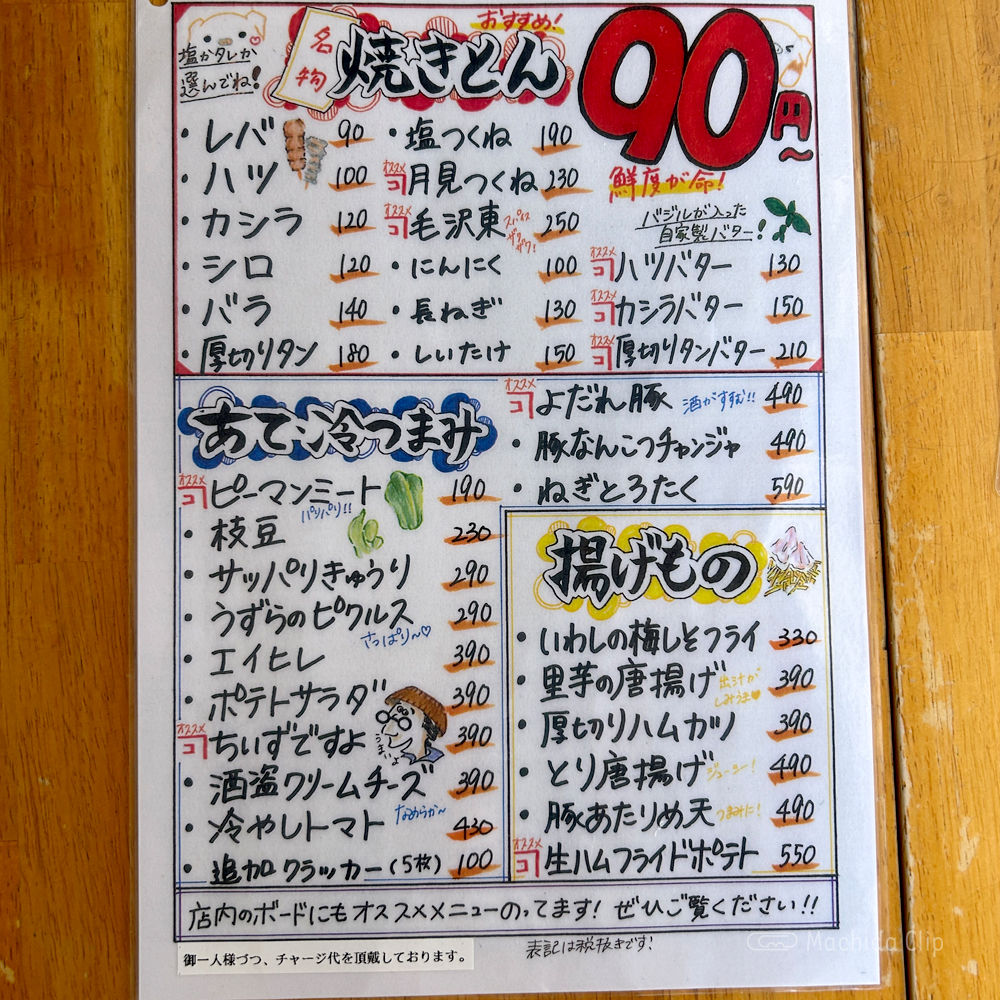 塩かタレか
選んでね!
名物
焼きとん
おすすめ!
90円~
・レバ 90
・ハツ 100
・カシラ 120
・シロ 120
・バラ 140
・厚切りタン 180
・塩つくね 190
オススメ
コレ
月見つくね 230
オススメ
コレ
毛沢東 スパイスザクザク! 250
・にんにく 100
・長ねぎ 130
・しいたけ 150
鮮度が命!
バジルが入った
自家製バター!
オススメ
ハツバター 130
オススメ
カシラバター 150
オススメ
厚切りタンバター 210
あて・冷つまみ
オススメ
ピーマンミート 190
パリパリ!!
・枝豆 230
・サッパリきゅうり 290
・うずらのピクルス 290
さっぱり~♡
・エイヒレ 390
・ポテトサラダ 390
うまいよ
オススメ
ちぃずですよ 390
・酒盗クリームチーズ 390
なめらか~
・冷やしトマト 430
・追加クラッカー(5枚) 100
オススメ
よだれ豚 酒がすすむ!! 490
・豚なんこつチャンジャ 490
・ねぎとろたく 590
揚げもの
・いわしの梅しそフライ 330
・里芋の唐揚げ 出汁がしみうま♥ 390
・厚切りハムカツ 390
・とり唐揚げ ジューシー! 490
・豚あたりめ天 つまみに! 490
オススメ
生ハムフライドポテト 550
店内のボードにもオススメメニューのってます! ぜひご覧ください!!
表記は税抜きです!
御一人様づつ、チャージ代を頂戴しております。
Machida Clip